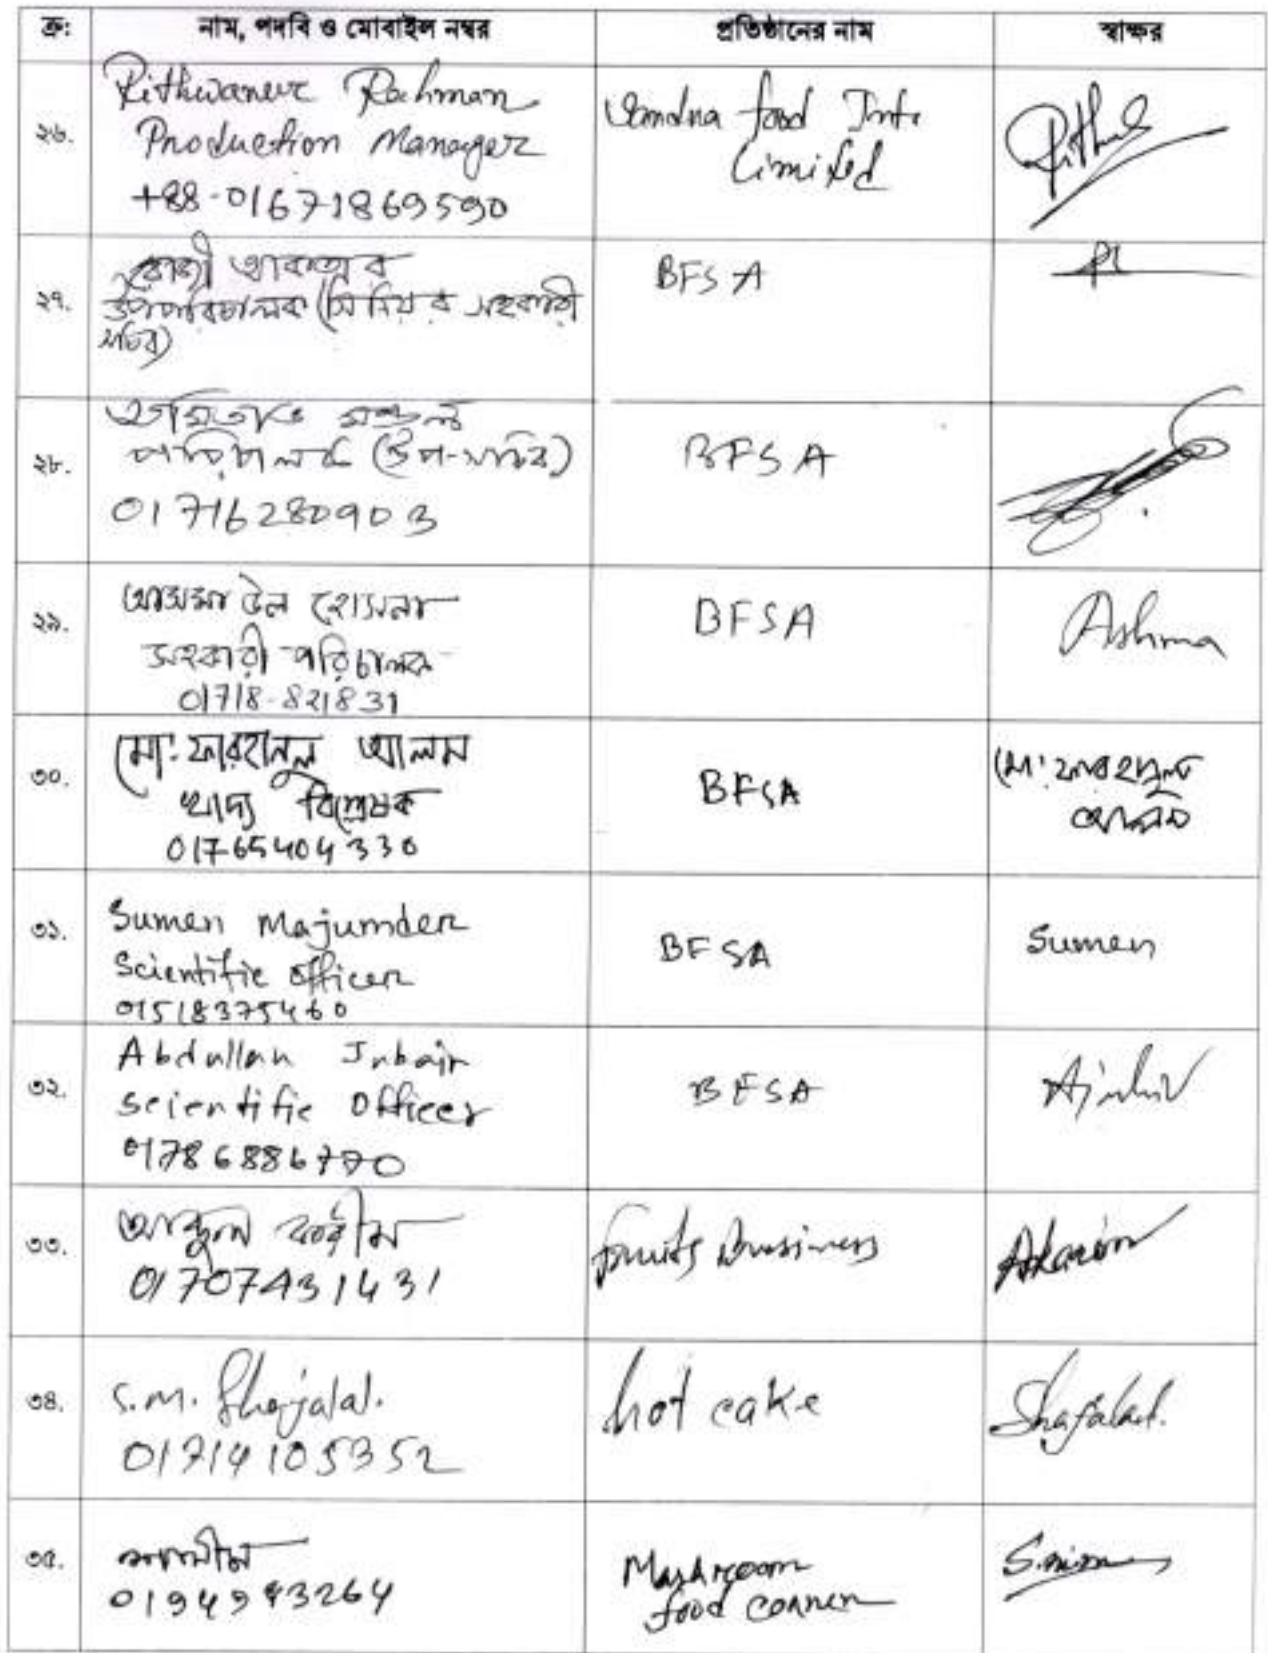 ক্র: নাম, পদবি ও মোবাইল নম্বর প্রতিষ্ঠানের নাম স্বাক্ষর
২৬. Rithwaneur Rahman
Production Manager
+88-01671869590
food Inte
Limited
২৭.
উপপরিচালক (সিনিয়র সহকারী
সচিব)
BFSA
২৮. অমিতাভ মন্ডল
পরিচালক (উপ-সচিব)
01716280903
BFSA
২৯. আসমা উল হোসনা
সহকারী পরিচালক
01718-821831
BFSA
Ashma
৩০. মো: ফারহানুল আলম
খাদ্য বিশ্লেষক
01765404330
BFSA
মো: ফারহানুল
আলম
৩১. Sumen Majumder
Scientific officer
01518375460
BFSA
Sumen
৩২. Abdullah Jubair
Scientific Officer
01786886770
BFSA
৩৩. আব্দুল করীম
01707431431
fruits Business
Akarim
৩৪. S.M. Shajalal.
01714105352
hot cake
Shajalal.
৩৫.
Mashroom
food conner